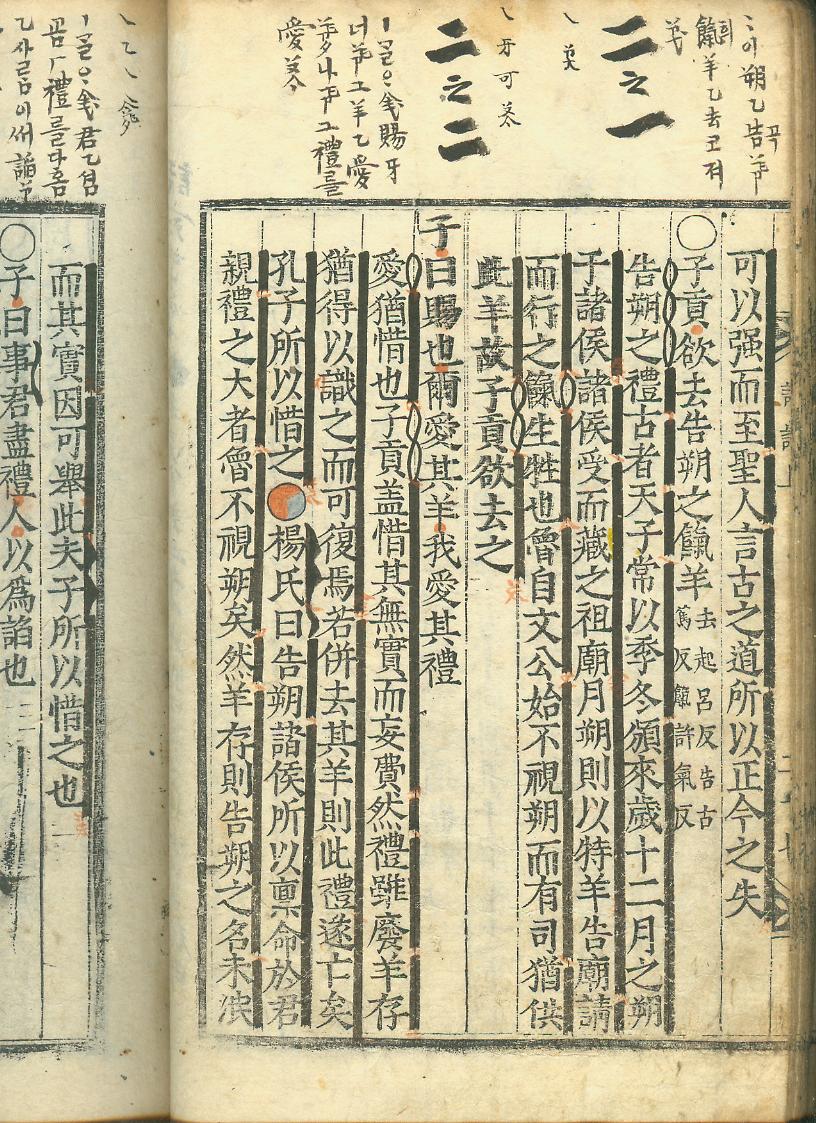 朔乙告
餼羊乙去코져
二之一
牙可
二之二
賜牙
그羊乙愛
그禮를
愛
君乙셤
禮를다홈
乙사름이써諂
可以强而至聖人言古之道所以正今之失
○子貢欲去告朔之餼羊
去起呂反告古
篤反餼許氣反
告朔之禮古者天子常以季冬頒來歲十二月之朔
于諸侯諸侯受而藏之祖廟月朔則以特羊告廟請
而行之餼生牲也魯自文公始不視朔而有司猶供
此羊故子貢欲去之
子曰賜也爾愛其羊我愛其禮
愛猶惜也子貢盖惜其無實而妄費然禮雖廢羊存
猶得以識之而可復焉若併去其羊則此禮遂亡矣
孔子所以惜之○楊氏曰告朔諸侯所以稟命於君
親禮之大者魯不視朔矣然羊存則告朔之名未泯
而其實因可舉此夫子所以惜之也
○子曰事君盡禮人以爲諂也